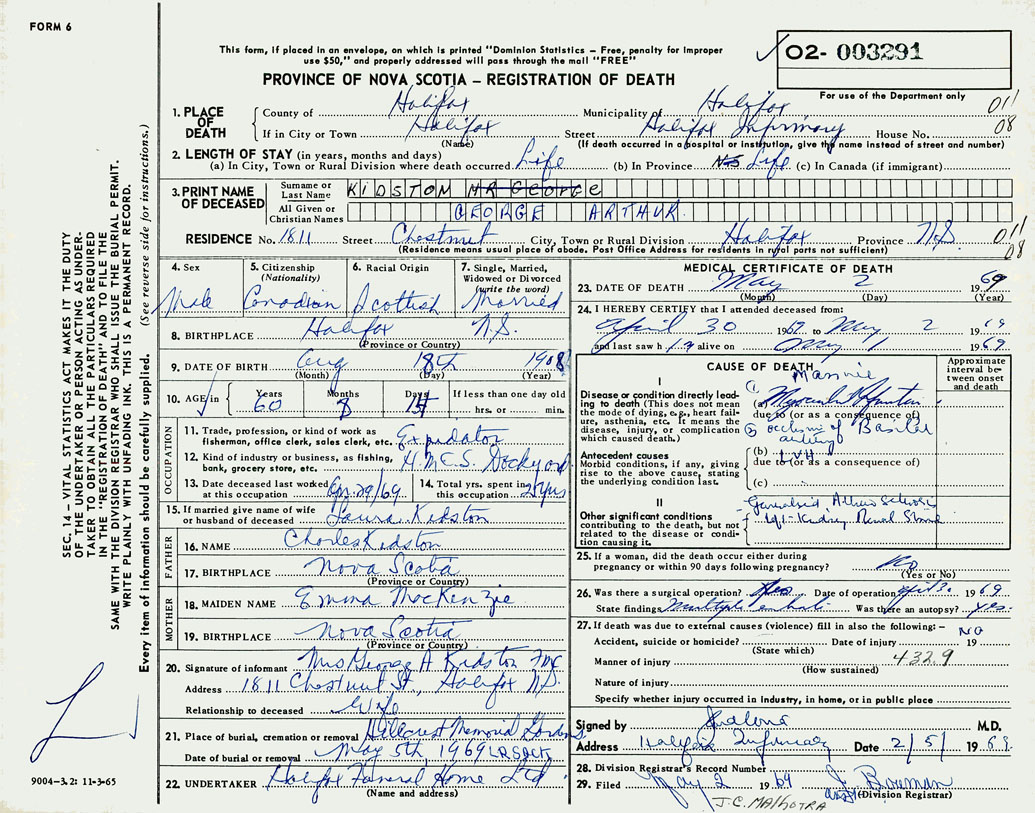 FORM 6
This form, if placed in an envelope, on which is printed "Dominion Statistics – Free, penalty for improper
use $50," and properly addressed will pass through the mail "FREE"
PROVINCE OF NOVA SCOTIA – REGISTRATION OF DEATH
O2- 003291
For use of the Department only
1. PLACE OF DEATH
County of Halifax Municipality of Halifax 011
If in City or Town Halifax Street Halifax Infirmary House No. 08
(Name) (If death occurred in a hospital or institution, give the name instead of street and number)
2. LENGTH OF STAY (in years, months and days)
(a) In City, Town or Rural Division where death occurred Life (b) In Province Life (c) In Canada (if immigrant)
3. PRINT NAME OF DECEASED
Surname or Last Name KIDSTON MR George
All Given or Christian Names GEORGE ARTHUR
RESIDENCE No. 1811 Street Chestnut City, Town or Rural Division Halifax Province N.S. 011
(Residence means usual place of abode. Post Office Address for residents in rural parts not sufficient) 08
4. Sex Male
5. Citizenship (Nationality) Canadian
6. Racial Origin Scottish
7. Single, Married, Widowed or Divorced (write the word) Married
8. BIRTHPLACE Halifax N.S.
(Province or Country)
9. DATE OF BIRTH Aug 18th 1908
(Month) (Day) (Year)
10. AGE in Years 60 Months 8 Days 15 If less than one day old hrs. or min.
OCCUPATION
11. Trade, profession, or kind of work as
fisherman, office clerk, sales clerk, etc.
12. Kind of industry or business, as fishing,
bank, grocery store, etc. H.M.C.S. Dockyard
13. Date deceased last worked at this occupation Apr. 29/69
14. Total yrs. spent in this occupation 2 yrs
15. If married give name of wife
or husband of deceased Laura Kidston
FATHER
16. NAME Charles Kidston
17. BIRTHPLACE Nova Scotia
(Province or Country)
MOTHER
18. MAIDEN NAME Emma MacKenzie
19. BIRTHPLACE Nova Scotia
(Province or Country)
20. Signature of informant Mrs George A Kidston
Address 1811 Chestnut St., Halifax N.S.
Relationship to deceased Wife
21. Place of burial, cremation or removal Hillcrest Memorial Gardens
Date of burial or removal May 5th, 1969
22. UNDERTAKER Halifax Funeral Home Ltd
(Name and address)
MEDICAL CERTIFICATE OF DEATH
23. DATE OF DEATH May 2 1969
(Month) (Day) (Year)
24. I HEREBY CERTIFY that I attended deceased from:
April 30 1969, to May 2 1969
and last saw h im alive on May 1 1969
CAUSE OF DEATH
Approximate interval between onset and death
I
Disease or condition directly leading to death (This does not mean the mode of dying, e.g., heart failure, asthenia, etc. It means the disease, injury, or complication which caused death.)
(1) Massive
(a) Myocardial Infarction
due to (or as a consequence of)
(2) occlusion of Basilar
artery
Antecedent causes
Morbid conditions, if any, giving rise to the above cause, stating the underlying condition last.
(b) LVH
due to (or as a consequence of)
(c)
II
Other significant conditions
contributing to the death, but not related to the disease or condition causing it.
Kidney Renal Stone
25. If a woman, did the death occur either during
pregnancy or within 90 days following pregnancy? No
(Yes or No)
26. Was there a surgical operation? Yes Date of operation April 30 1969
State findings Multiple emboli Was there an autopsy? Yes.
27. If death was due to external causes (violence) fill in also the following: – NO
Accident, suicide or homicide? Date of injury 19
(State which)
Manner of injury 432.9
(How sustained)
Nature of injury
Specify whether injury occurred in industry, in home, or in public place
Signed by M.D.
Address Halifax Infirmary Date 2/5/ 1969.
28. Division Registrar's Record Number
29. Filed May 2 1969
(Division Registrar)
J.C. MALHOTRA
SEC. 14 – VITAL STATISTICS ACT MAKES IT THE DUTY
OF THE UNDERTAKER OR PERSON ACTING AS UNDER-
TAKER TO OBTAIN ALL THE PARTICULARS REQUIRED
IN THE "REGISTRATION OF DEATH" AND TO FILE THE
SAME WITH THE DIVISION REGISTRAR WHO SHALL ISSUE THE BURIAL PERMIT.
WRITE PLAINLY WITH UNFADING INK. THIS IS A PERMANENT RECORD.
Every item of information should be carefully supplied. (See reverse side for instructions.)
9004-3.2: 11-3-65